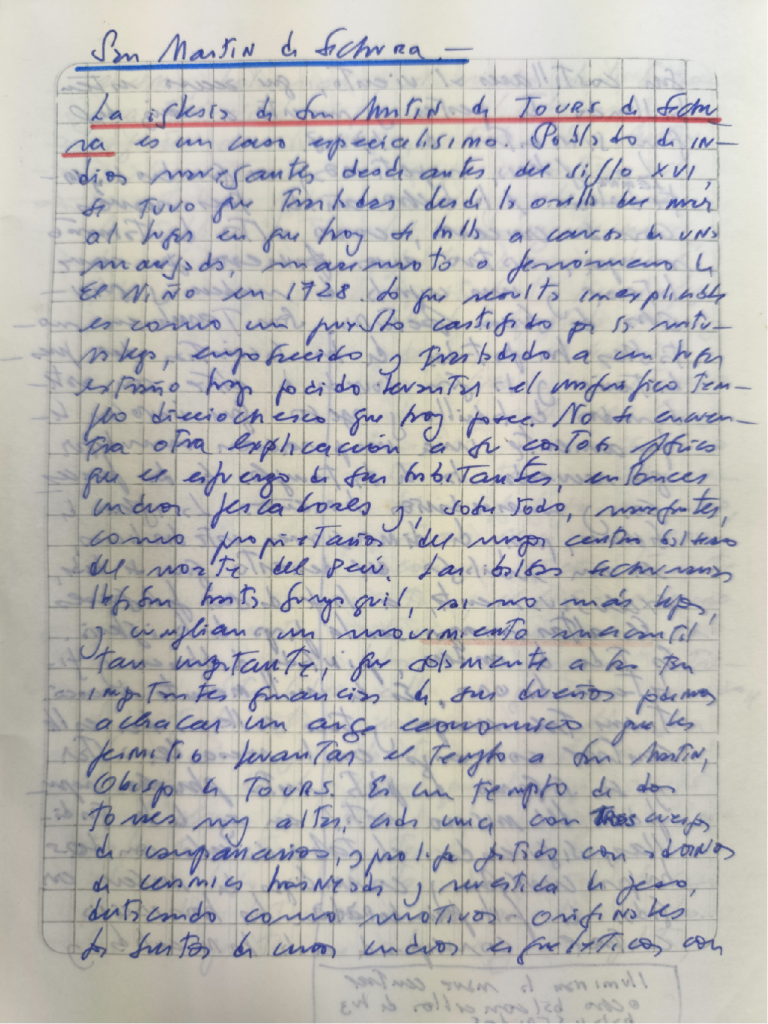 San Martin de Sechura.—
La iglesia de San Martin de Tours de Sechu
ra es un caso especialisimo. Poblado de in-
dios navegantes desde antes del siglo XVI,
se tuvo que trasladar desde la orilla del mar
al lugar en que hoy se halla a causa de una
marejada, maremoto o fenómeno de
El Niño en 1728. Lo que resulta inexplicable
es como un pueblo castigado por la natu-
raleza, empobrecido y trasladado a un lugar
extraño haya podido levantar el magnifico tem-
plo dieciochesco que hoy posee. No se encuen-
tra otra explicación a su costosa fábrica
que el esfuerzo de sus habitantes, entonces
indios pescadores y, sobre todo, navegantes,
como propietarios del mayor centro balsero
del norte del Perú. Las balsas sechuranas
llegaban hasta Guayaquil, si no más lejos,
y cumplian un movimiento mercantil
tan importante, que solamente a las tan
importantes ganancias de sus dueños podemos
achacar un auge económico que les
permitió levantar el templo a San Martin,
Obispo de Tours. Es un templo de dos
torres muy altas, cada una con tres cuerpos
de campanarios, y con adornos
de cerámica y de yeso,
destacando como motivos originales
los bustos de unos indios con
Iluminan la nave central